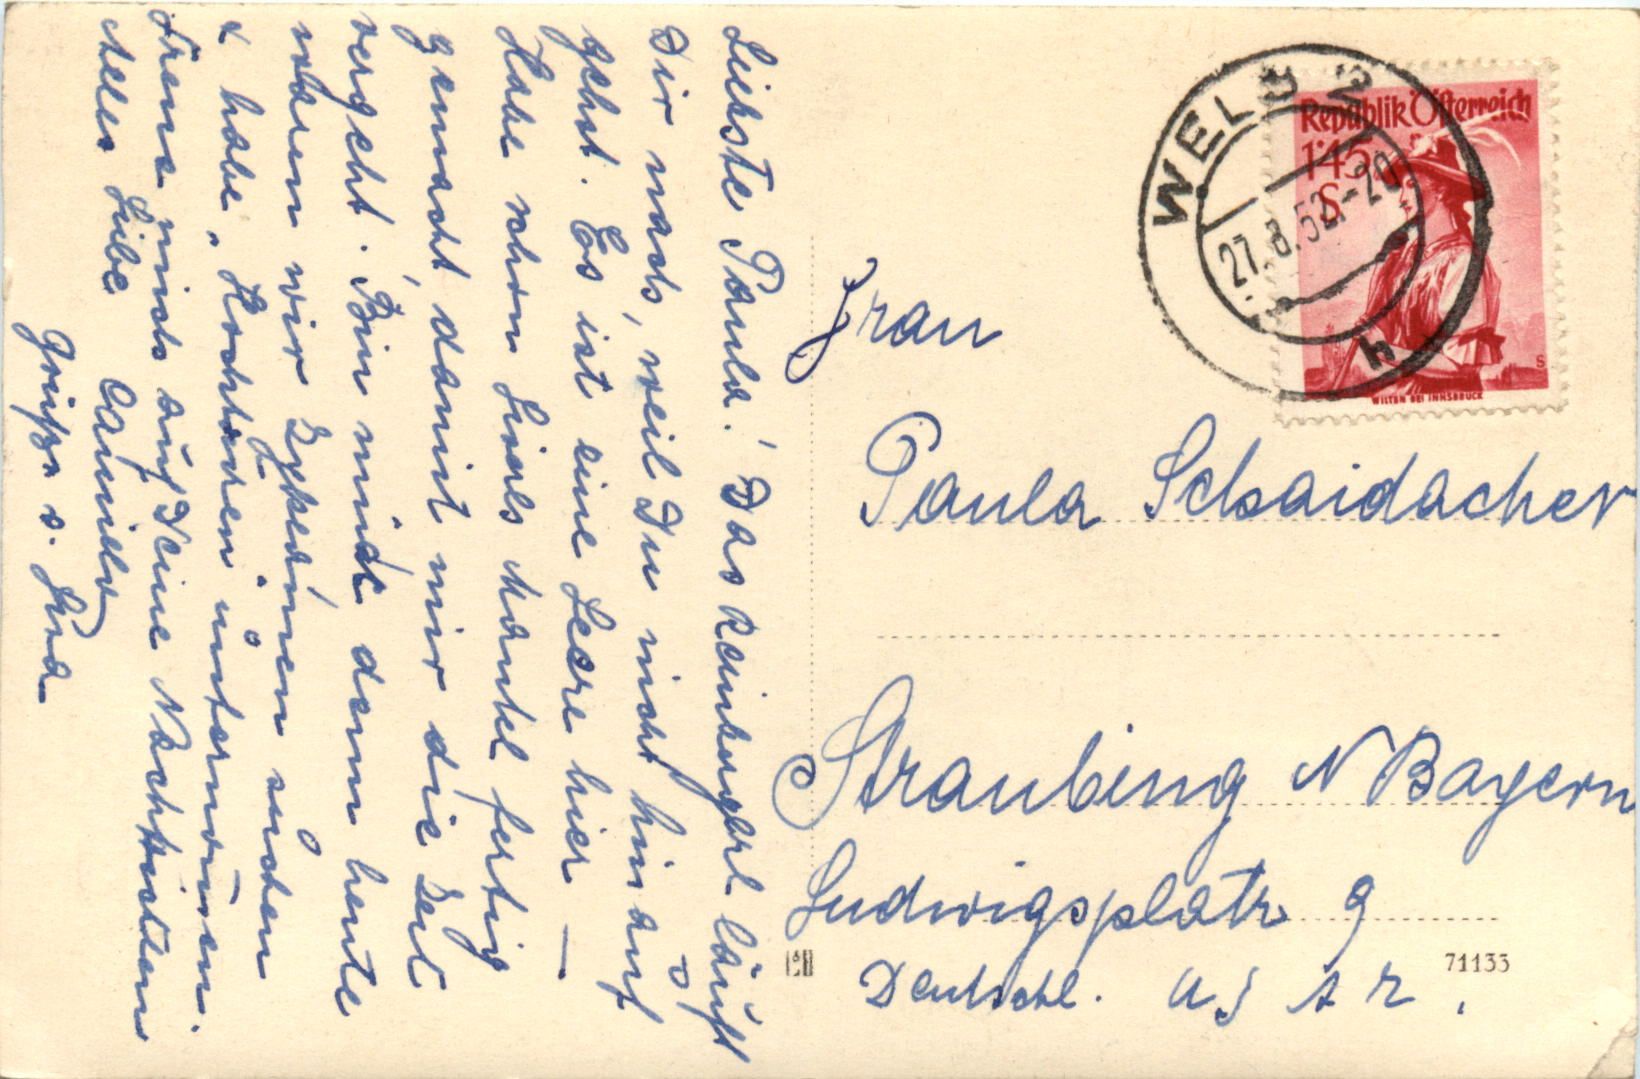 Liebste Paula! Das Reinhergerl läuft
Dir nach, weil Du nicht hin auf
gehst. Es ist eine Leere hier —
Habe schon Liserls Mantel fertig
gemacht, damit mir die Zeit
vergeht. Bin müde denn heute
waren wir Zyklamen suchen
& habe „Hochtouren" unternommen.
Freue mich auf Deine Nachrichten
Alles Liebe Camilla
Grüße v. Lisa
Frau
Paula Schaidacher
Straubing N Bayern
Ludwigsplatz 9
Deutschl. U S A Z.
WELS 2
27.8.52.-20
h
Republik Österreich
1·45
S
WILTEN BEI INNSBRUCK
71133